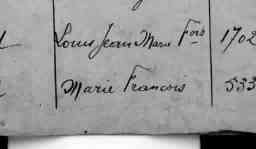 Louis Jean Marie Fois 1702
Marie Francois 533